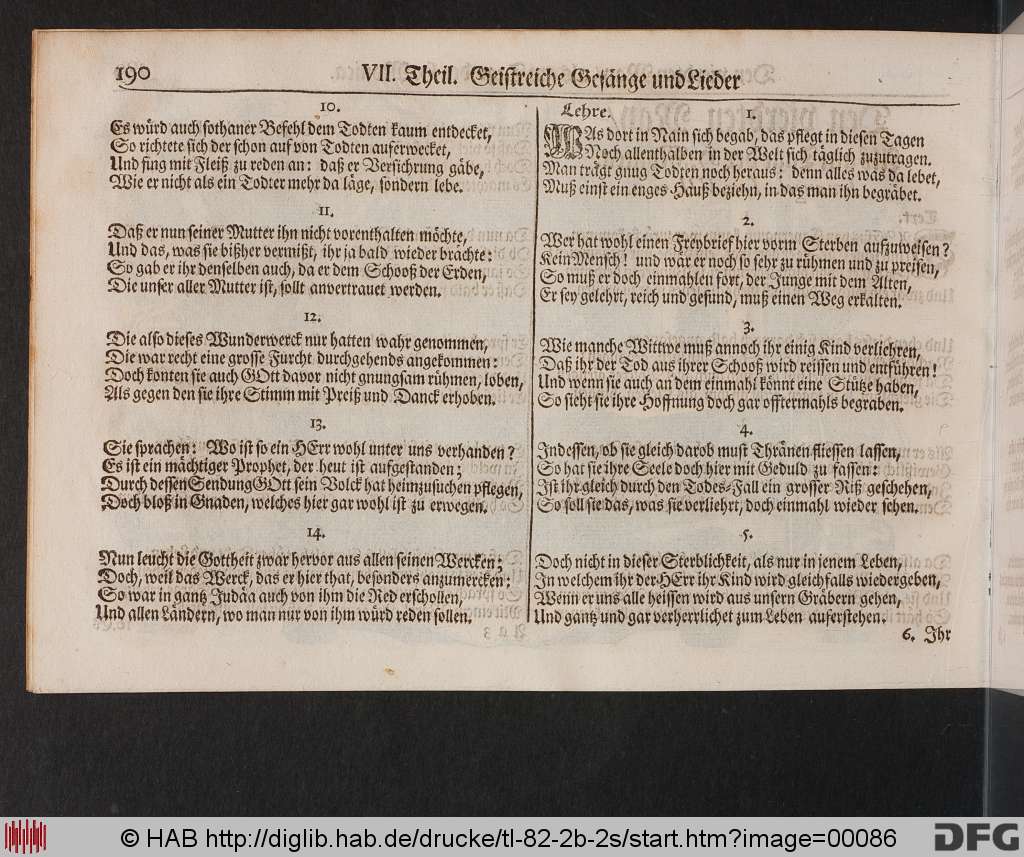 190
VII. Theil. Geistreiche Gesänge und Lieder
10.
Es würd auch sothaner Befehl dem Todten kaum entdecket,
So richtete sich der schon auf von Todten auferwecket,
Und fing mit Fleiß zu reden an: daß er Versichrung gäbe,
Wie er nicht als ein Todter mehr da läge, sondern lebe.
11.
Daß er nun seiner Mutter ihn nicht vorenthalten möchte,
Und das, was sie bißher vermißt, ihr ja bald wieder brächte:
So gab er ihr denselben auch, da er dem Schooß der Erden,
Die unser aller Mutter ist, sollt anvertrauet werden.
12.
Die also dieses Wunderwerck nur hatten wahr genommen,
Die war recht eine grosse Furcht durchgehends angekommen:
Doch konten sie auch GOtt davor nicht gnungsam rühmen, loben,
Als gegen den sie ihre Stimm mit Preiß und Danck erhoben.
13.
Sie sprachen: Wo ist so ein HErr wohl unter uns verhanden?
Es ist ein mächtiger Prophet, der heut ist aufgestanden;
Durch dessen Sendung GOtt sein Volck hat heimzusuchen pflegen,
Doch bloß in Gnaden, welches hier gar wohl ist zu erwegen.
14.
Nun leucht die Gottheit zwar hervor aus allen seinen Wercken;
Doch, weil das Werck, das er hier that, besonders anzumercken:
So war in gantz Judäa auch von ihm die Red erschollen,
Und allen Ländern, wo man nur von ihm würd reden sollen.
Lehre. 1.
WAs dort in Nain sich begab, das pflegt in diesen Tagen
Noch allenthalben in der Welt sich täglich zuzutragen.
Man trägt gnug Todten noch heraus: denn alles was da lebet,
Muß einst ein enges Hauß beziehn, in das man ihn begräbet.
2.
Wer hat wohl einen Freybrief hier vorm Sterben aufzuweisen?
Kein Mensch! und wär er noch so sehr zu rühmen und zu preisen,
So muß er doch einmahlen fort, der Junge mit dem Alten,
Er sey gelehrt, reich und gesund, muß einen Weg erkalten.
3.
Wie manche Wittwe muß annoch ihr einig Kind verliehren,
Daß ihr der Tod aus ihrer Schooß wird reissen und entführen!
Und wenn sie auch an dem einmahl könnt eine Stütze haben,
So sieht sie ihre Hoffnung doch gar offtermahls begraben.
4.
Indessen, ob sie gleich darob must Thränen fliessen lassen,
So hat sie ihre Seele doch hier mit Geduld zu fassen:
Ist ihr gleich durch den Todes-Fall ein grosser Riß geschehen,
So soll sie das, was sie verliehrt, doch einmahl wieder sehen.
5.
Doch nicht in dieser Sterblichkeit, als nur in jenem Leben,
In welchem ihr der HErr ihr Kind wird gleichfalls wiedergeben,
Wenn er uns alle heissen wird aus unsern Gräbern gehen,
Und gantz und gar verherrlichet zum Leben auferstehen.
6. Ihr
© HAB http://diglib.hab.de/drucke/tl-82-2b-2s/start.htm?image=00086
DFG